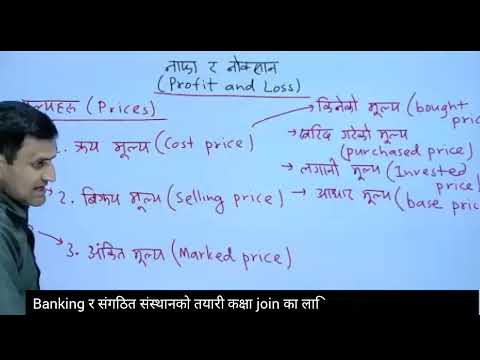 नाफा र नोक्सान
(Profit and Loss)
मूल्यहरू (Prices)
1. क्रय मूल्य (Cost price)
किनेको मूल्य (bought
खरिद गरेको मूल्य
(purchased price)
लगानी मूल्य (Invested
price)
2. बिक्रय मूल्य (Selling price)
आधार मूल्य (base
3. अंकित मूल्य (Marked price)
Banking र संगठित संस्थानको तयारी कक्षा join का